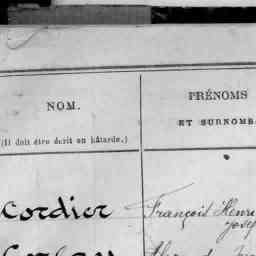 NOM.
(Il doit être écrit en bâtarde.)
PRÉNOMS
ET SURNOMS.
Cordier
François Henri
Josep